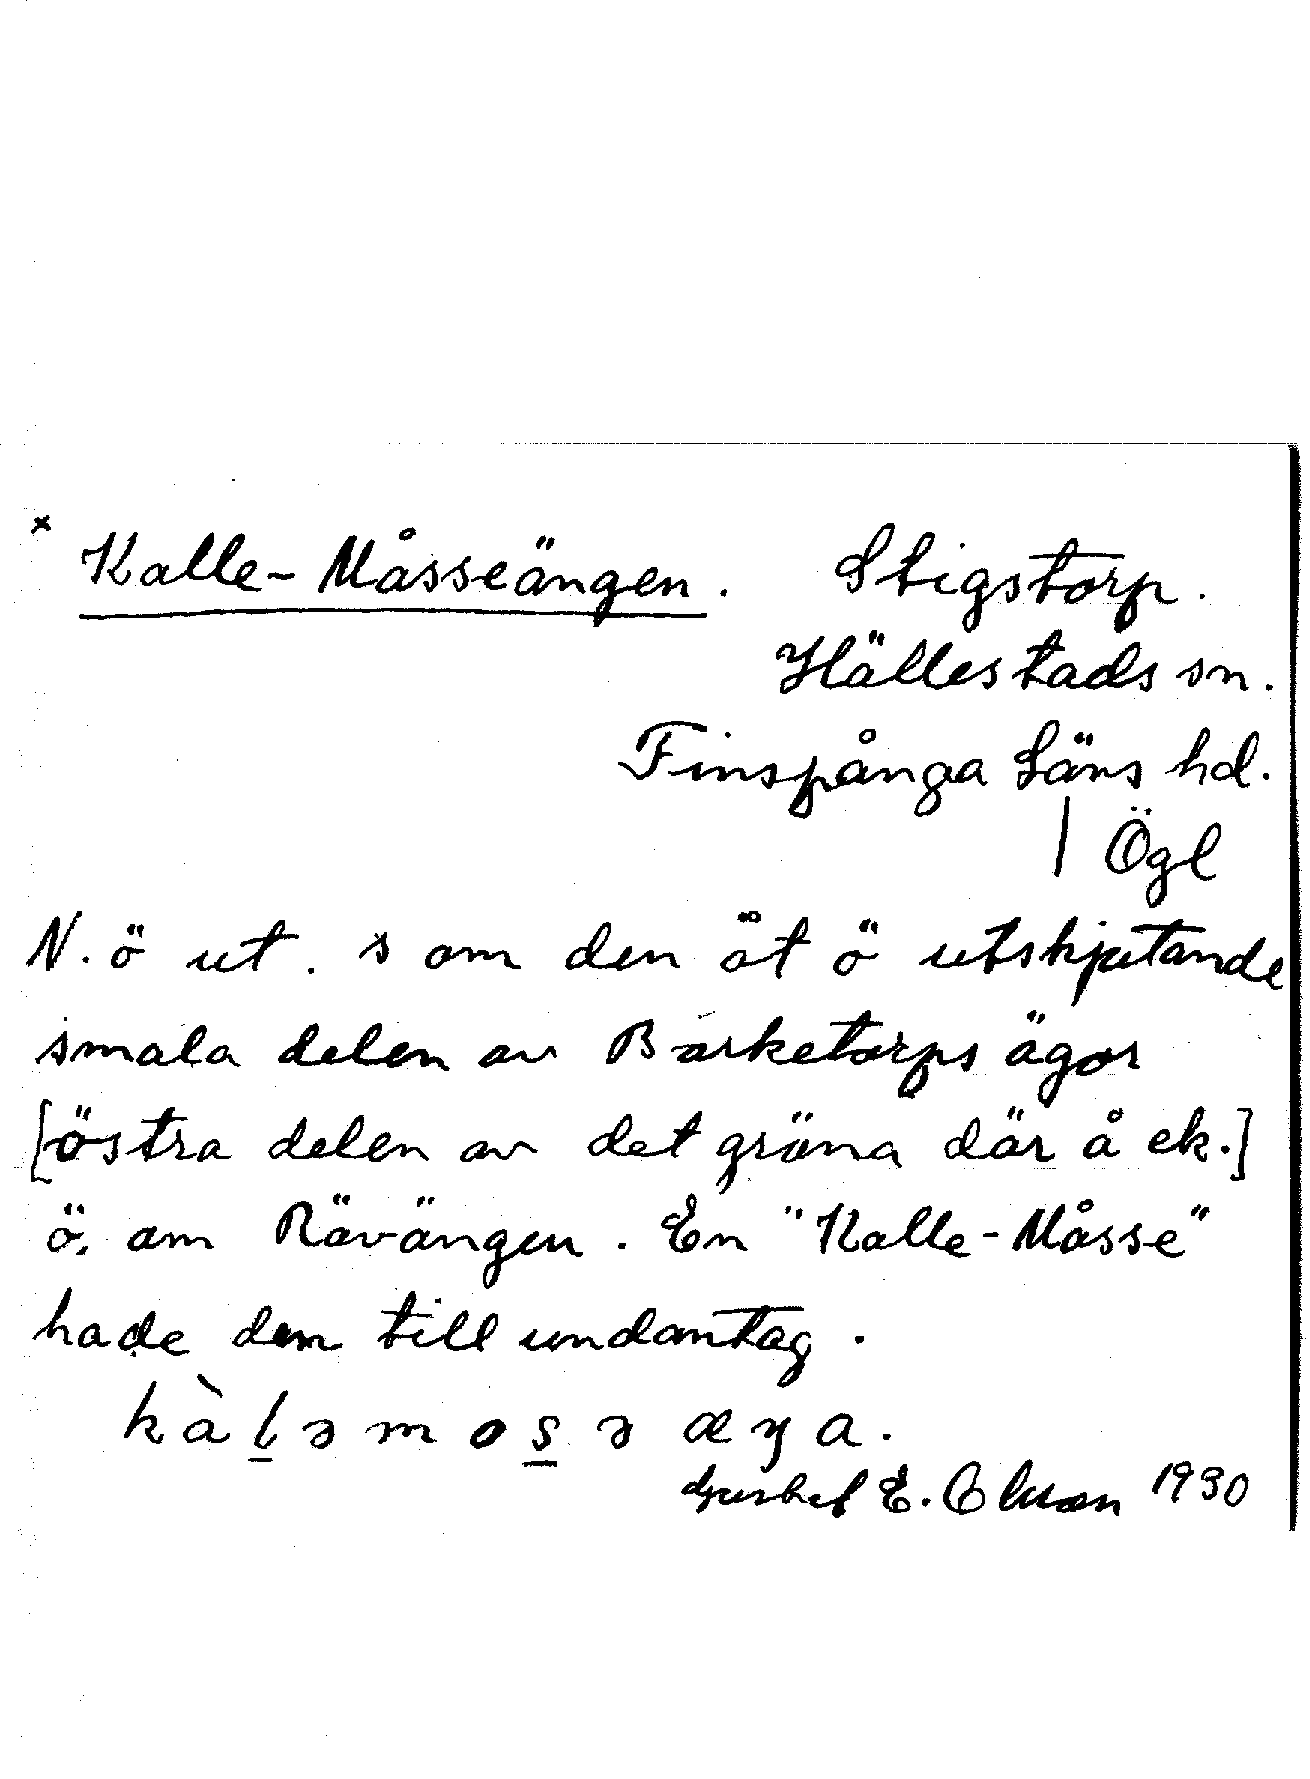 x Kalle-Måsseängen. Stigstorp.
Hällestads sn.
Finspånga Läns hd.
| Ögl
N. ö ut. s om den åt ö utskjutande
smala delen av Barketorps ägor
[östra delen av det gröna där å ek.]
ö. om Rävängen. En "Kalle-Måsse"
hade den till undantag.
kàlǝmosǝ æŋa.
E. 1930